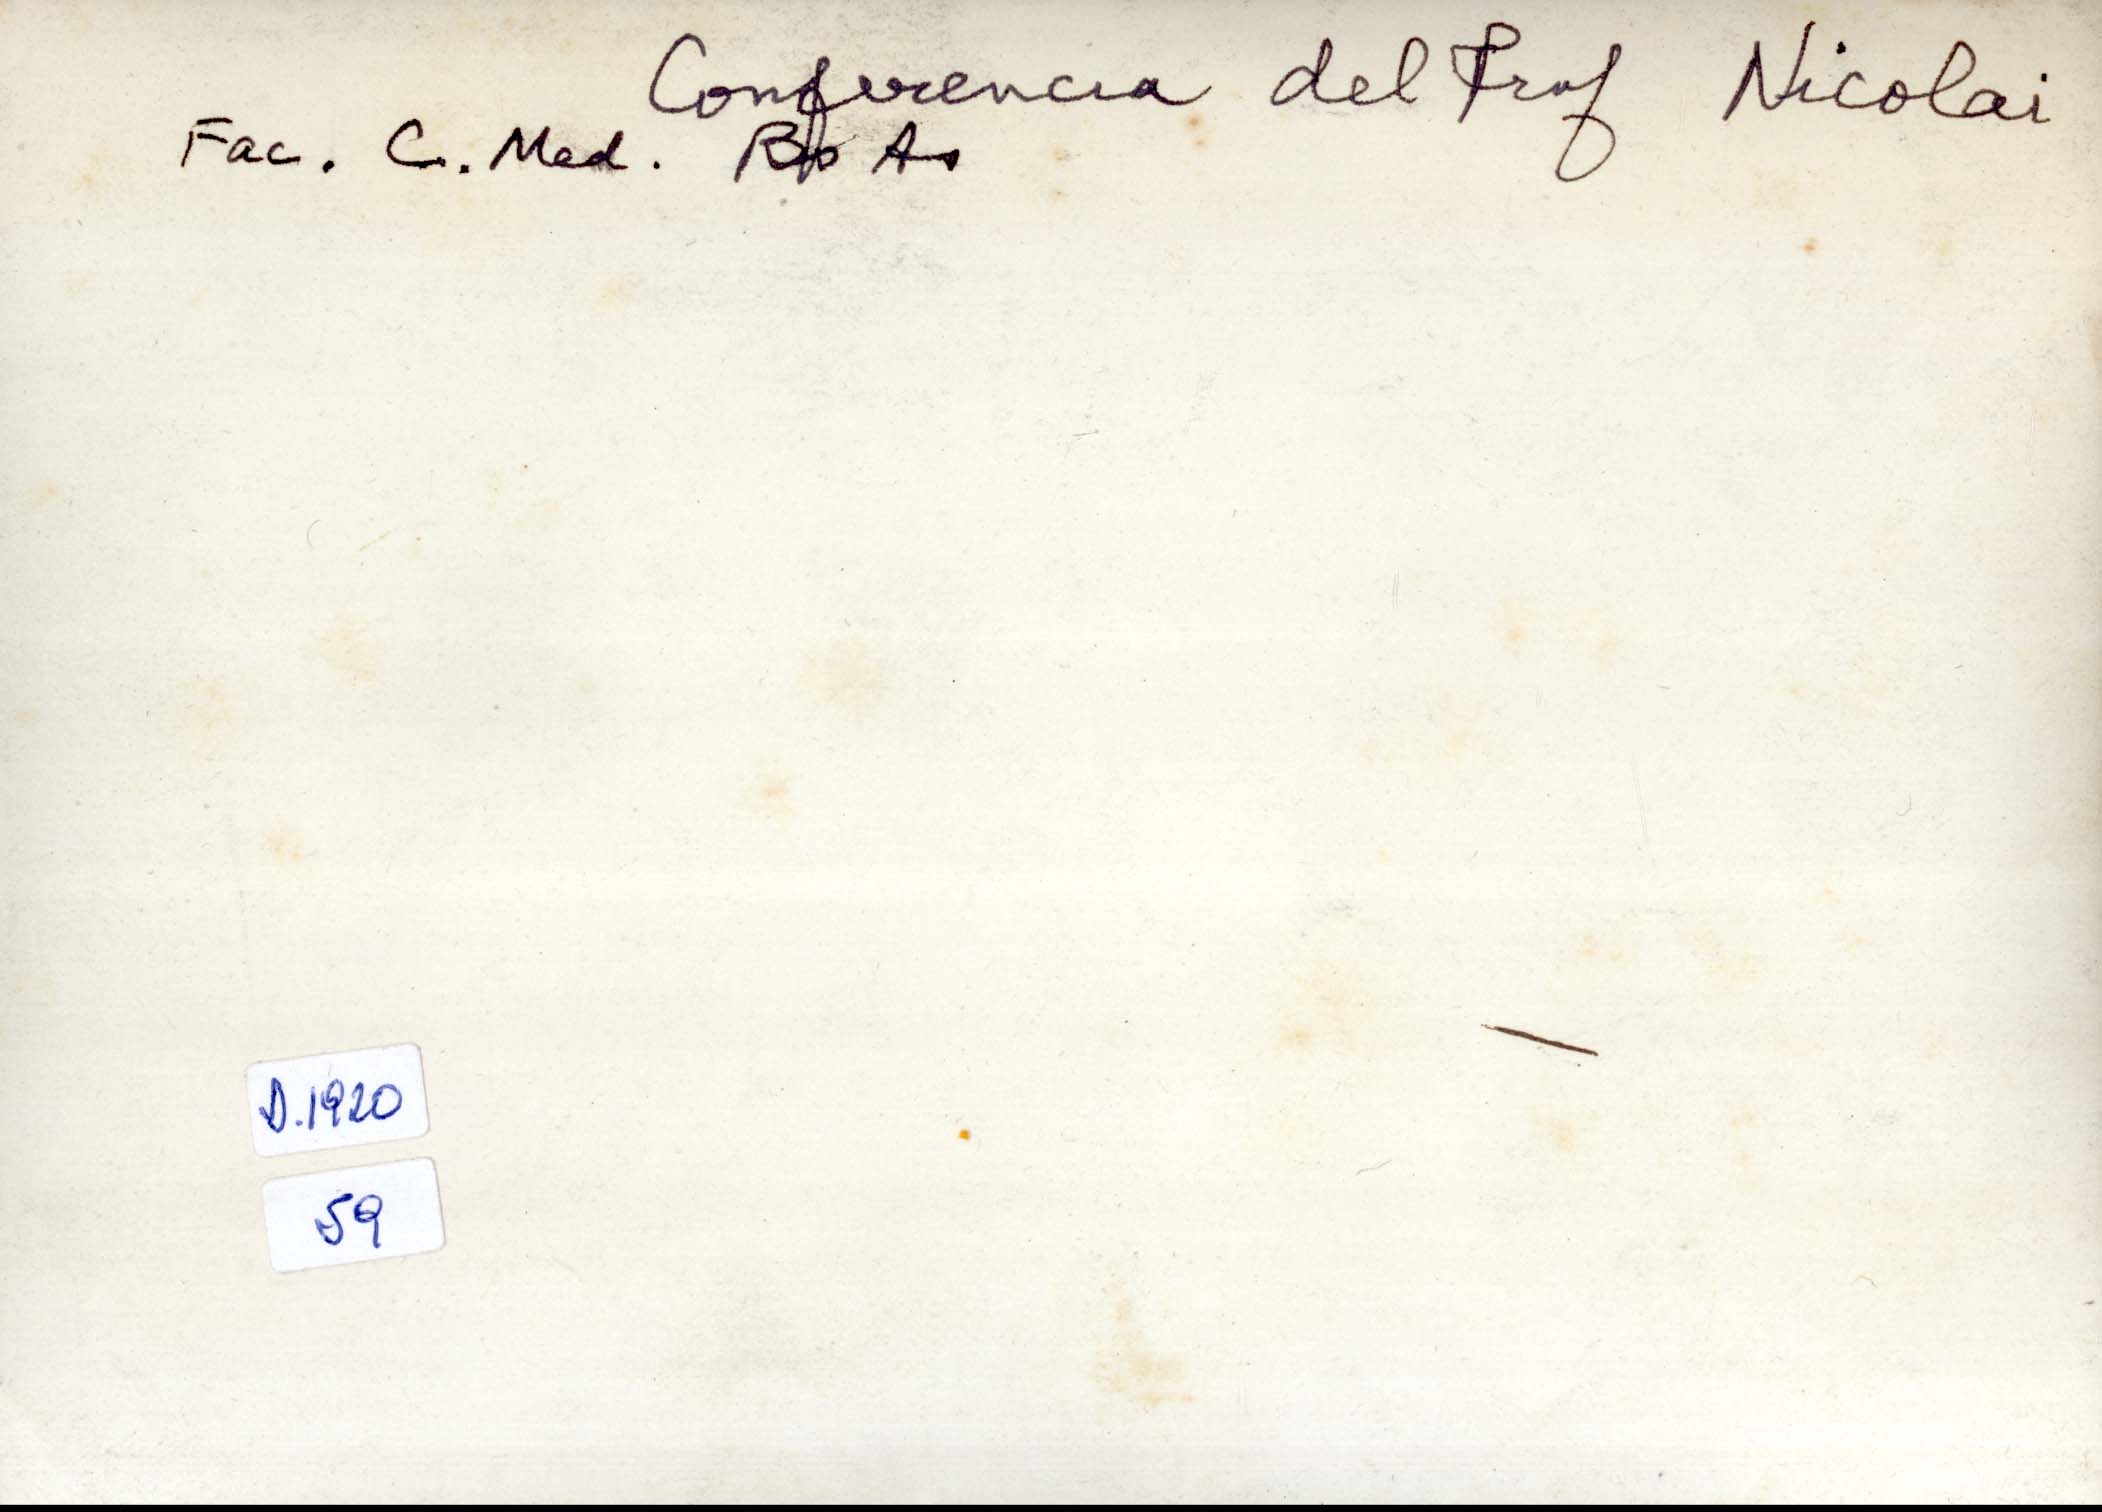 Conferencia del Prof Nicolai
Fac. C. Med. Bs As
D.1920
59